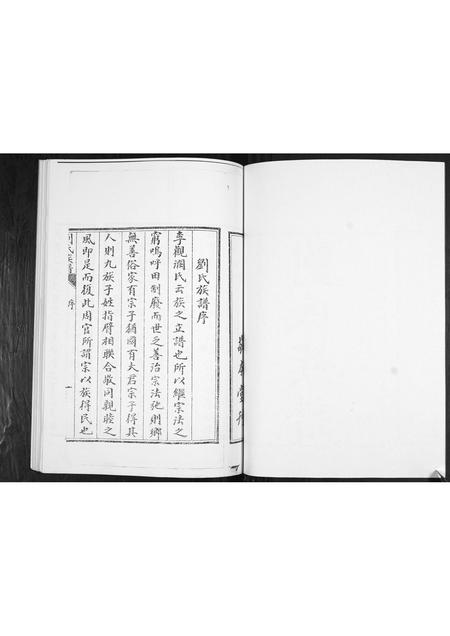 劉氏族譜序
李觀瀾氏云族之立譜也所以繼宗法之
窮嗚呼田制廢而世乏善治宗法弛則鄉
無善俗家有宗子猶國有大君宗子得其
人則九族子姓指臂相聯合敬同親睦之
風即是而復此周官所謂宗以族得民也
劉氏族譜
序
一